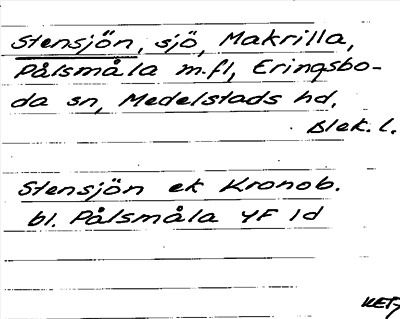 Stensjön, sjö, Makrilla,
Pålsmåla m.fl, Eringsbo-
da sn, Medelstads hd,
Blek. l.
Stensjön ek Kronob.
bl. Pålsmåla 4F 1d